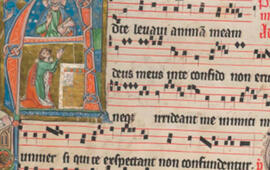 Ad te levavi animam meam
deus meus in te confido non eru
neq irrideant me inimici m
universi qui te expectant non confundentur.